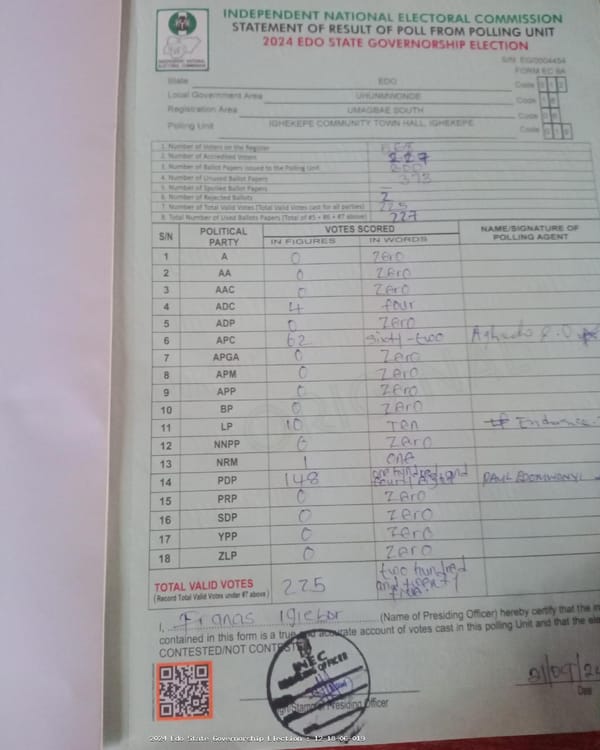 INDEPENDENT NATIONAL ELECTORAL COMMISSION
STATEMENT OF RESULT OF POLL FROM POLLING UNIT
2024 EDO STATE GOVERNORSHIP ELECTION
S/N: EG/0004454
FORM EC 8A
State EDO Code
Local Government Area UHUNMWONDE Code
Registration Area UMAGBAE SOUTH Code
Polling Unit IGHEKEPE COMMUNITY TOWN HALL, IGHEKEPE Code
1. Number of Voters on the Register
2. Number of Accredited Voters 227
3. Number of Ballot Papers issued to the Polling Unit 600
4. Number of Unused Ballot Papers 373
5. Number of Spoiled Ballot Papers —
6. Number of Rejected Ballots 2
7. Number of Total Valid Votes (Total Valid Votes cast for all parties) 225
8. Total Number of Used Ballots Papers (Total of #5 + #6 + #7 above) 227
S/N POLITICAL PARTY VOTES SCORED NAME/SIGNATURE OF POLLING AGENT
IN FIGURES IN WORDS
1 A 0 Zero
2 AA 0 Zero
3 AAC 0 Zero
4 ADC 4 four
5 ADP 0 Zero
6 APC 62 Sixty-two
7 APGA 0 Zero
8 APM 0 Zero
9 APP 0 Zero
10 BP 0 Zero
11 LP 10 Ten Endurance
12 NNPP 0 Zero
13 NRM 1 One
14 PDP 148 one hundred and fourty eight PAUL
15 PRP 0 Zero
16 SDP 0 Zero
17 YPP 0 Zero
18 ZLP 0 Zero
TOTAL VALID VOTES 225 two hundred and twenty five
(Record Total Valid Votes under #7 above)
I, (Name of Presiding Officer) hereby certify that the
contained in this form is a true and accurate account of votes cast in this polling Unit and that the
CONTESTED/NOT CONTESTED
INEC
PRESIDING OFFICER
Presiding Officer
21/09/24
Date
2024 Edo State Governorship Election : 12-18-06-019